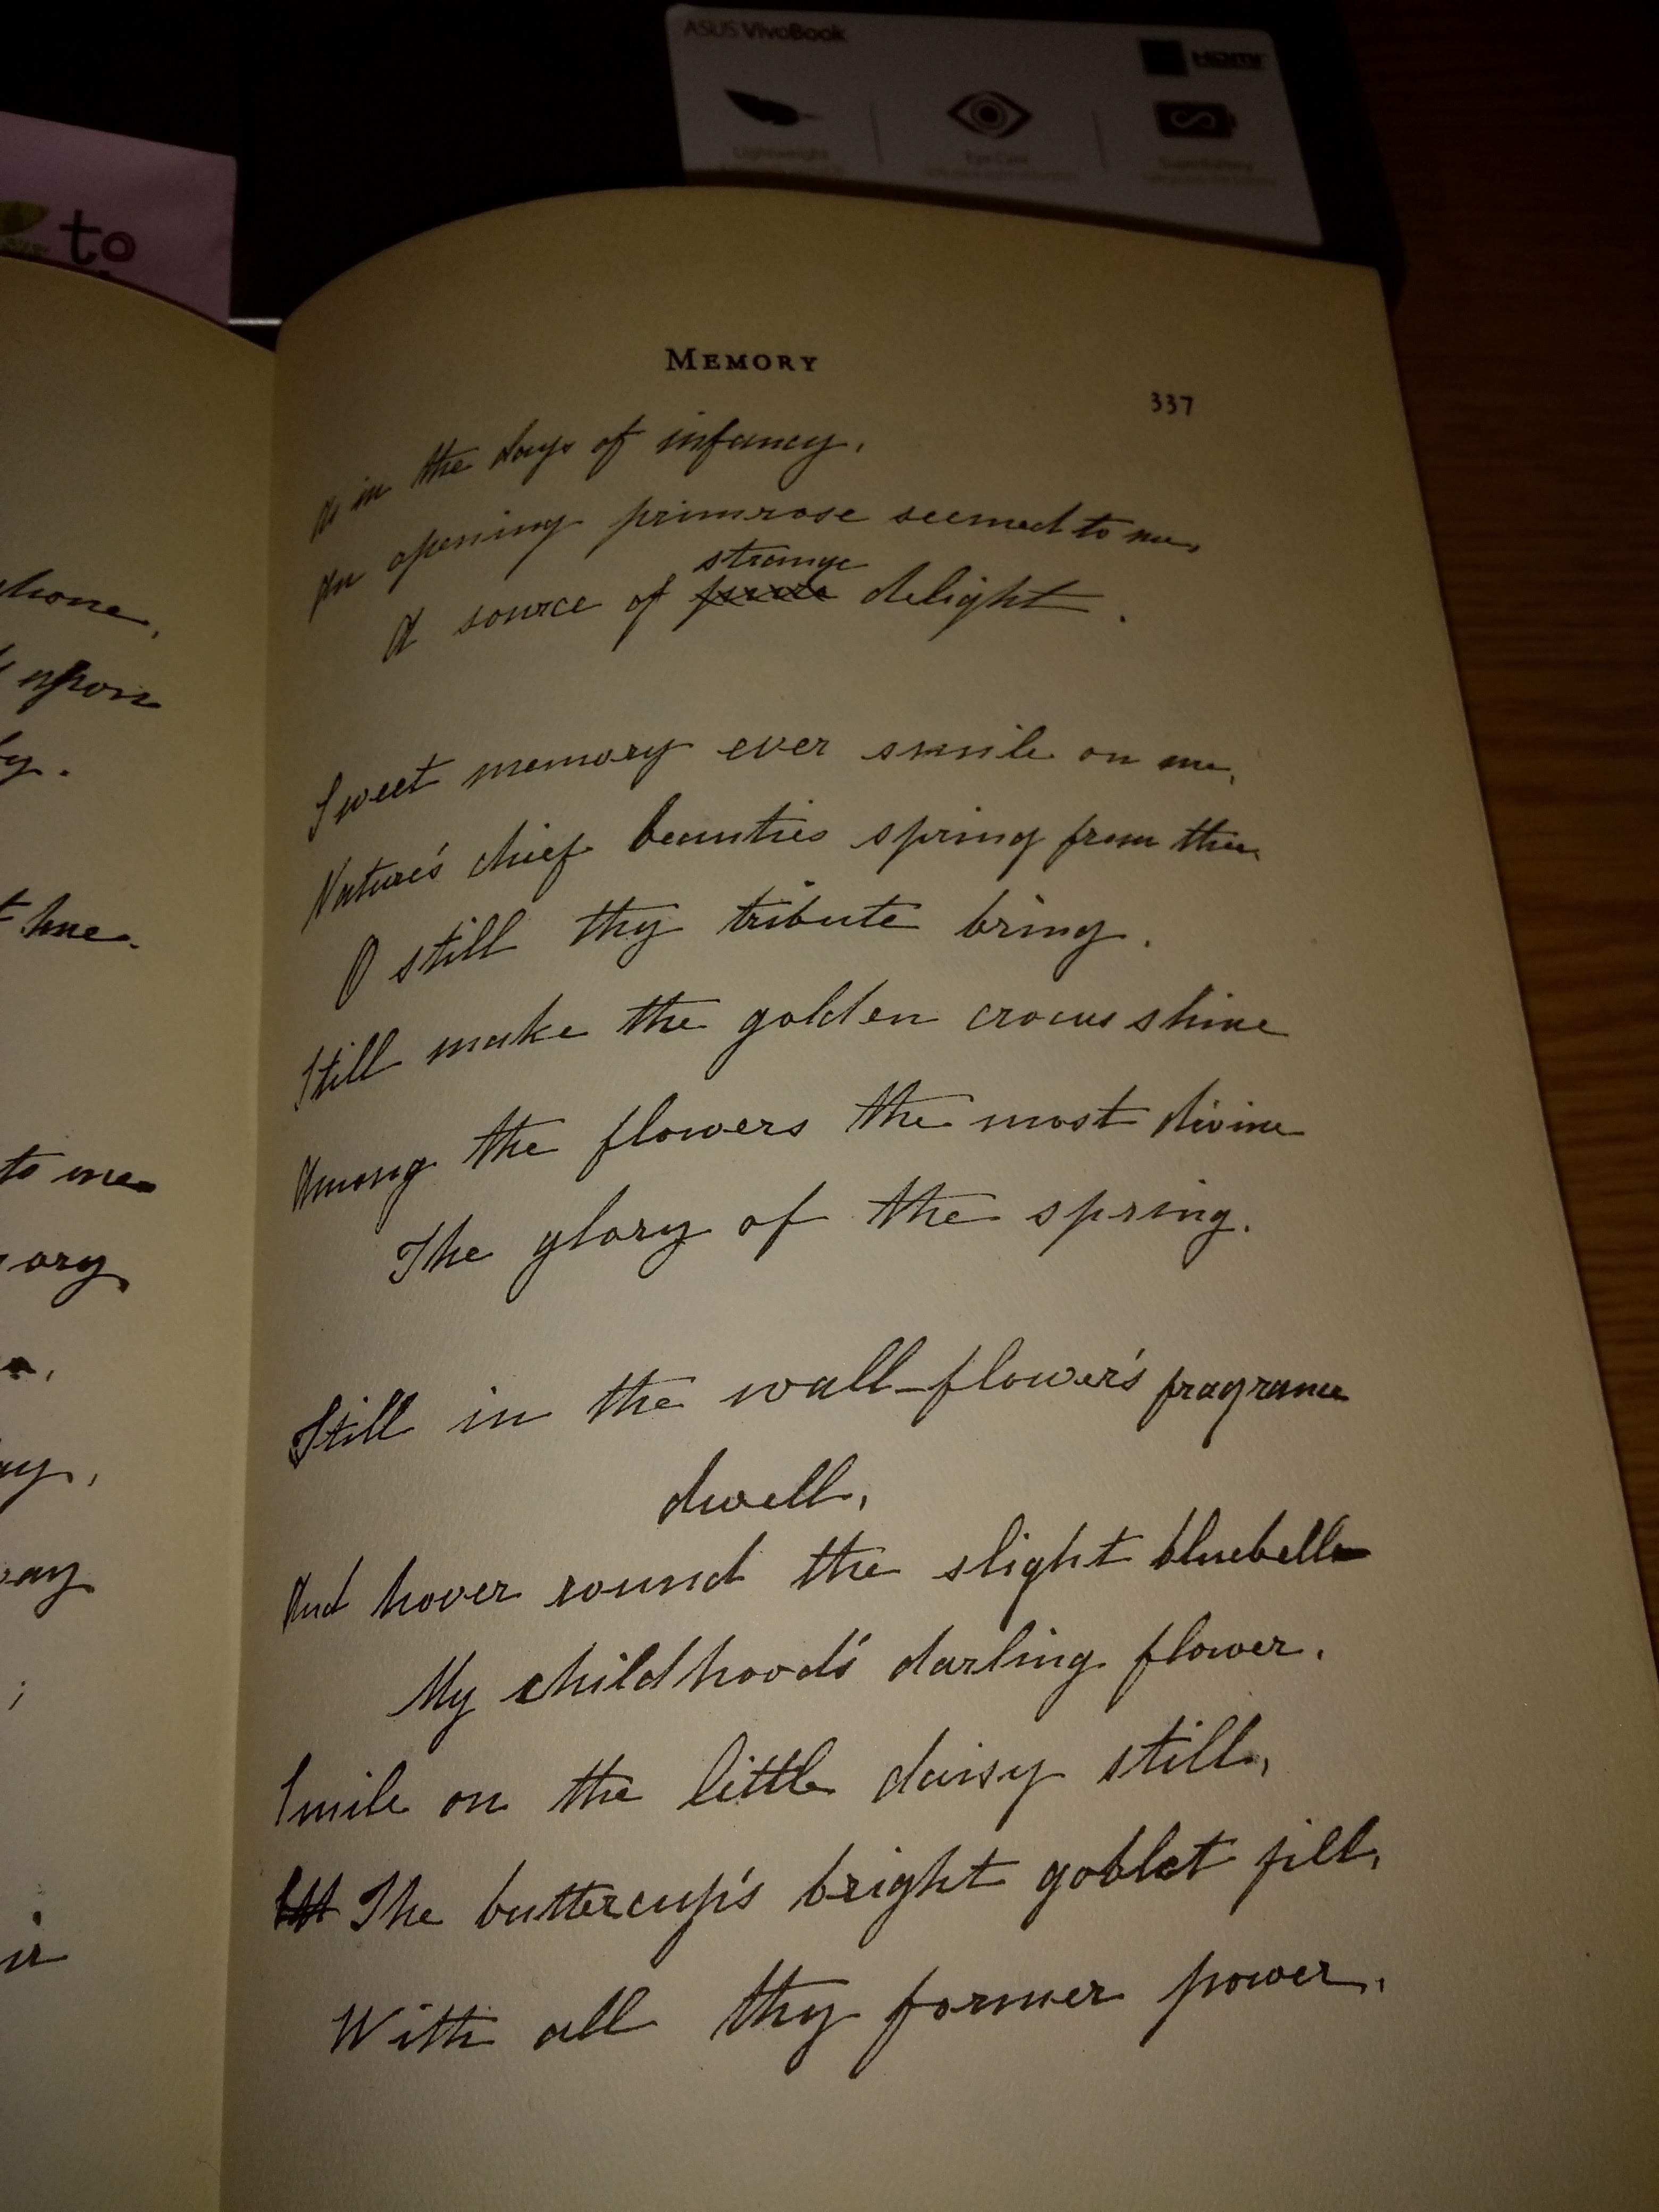 ASUS VivoBook
HDMI
Lightweight
Eye Care
SuperBattery
to
MEMORY
337
As in the days of infancy,
An opening primrose seemed to me,
strange
A source of delight.
Sweet memory ever smile on me,
Nature's chief beauties spring from thee
O still thy tribute bring.
Still make the golden crocus shine
Among the flowers the most divine
The glory of the spring.
Still in the wall-flower's fragrance
dwell,
And hover round the slight bluebell
My childhood's darling flower.
Smile on the little daisy still,
The buttercup's bright goblet fill,
With all thy former power,
hone,
upon
y.
to me
ory
ay
;